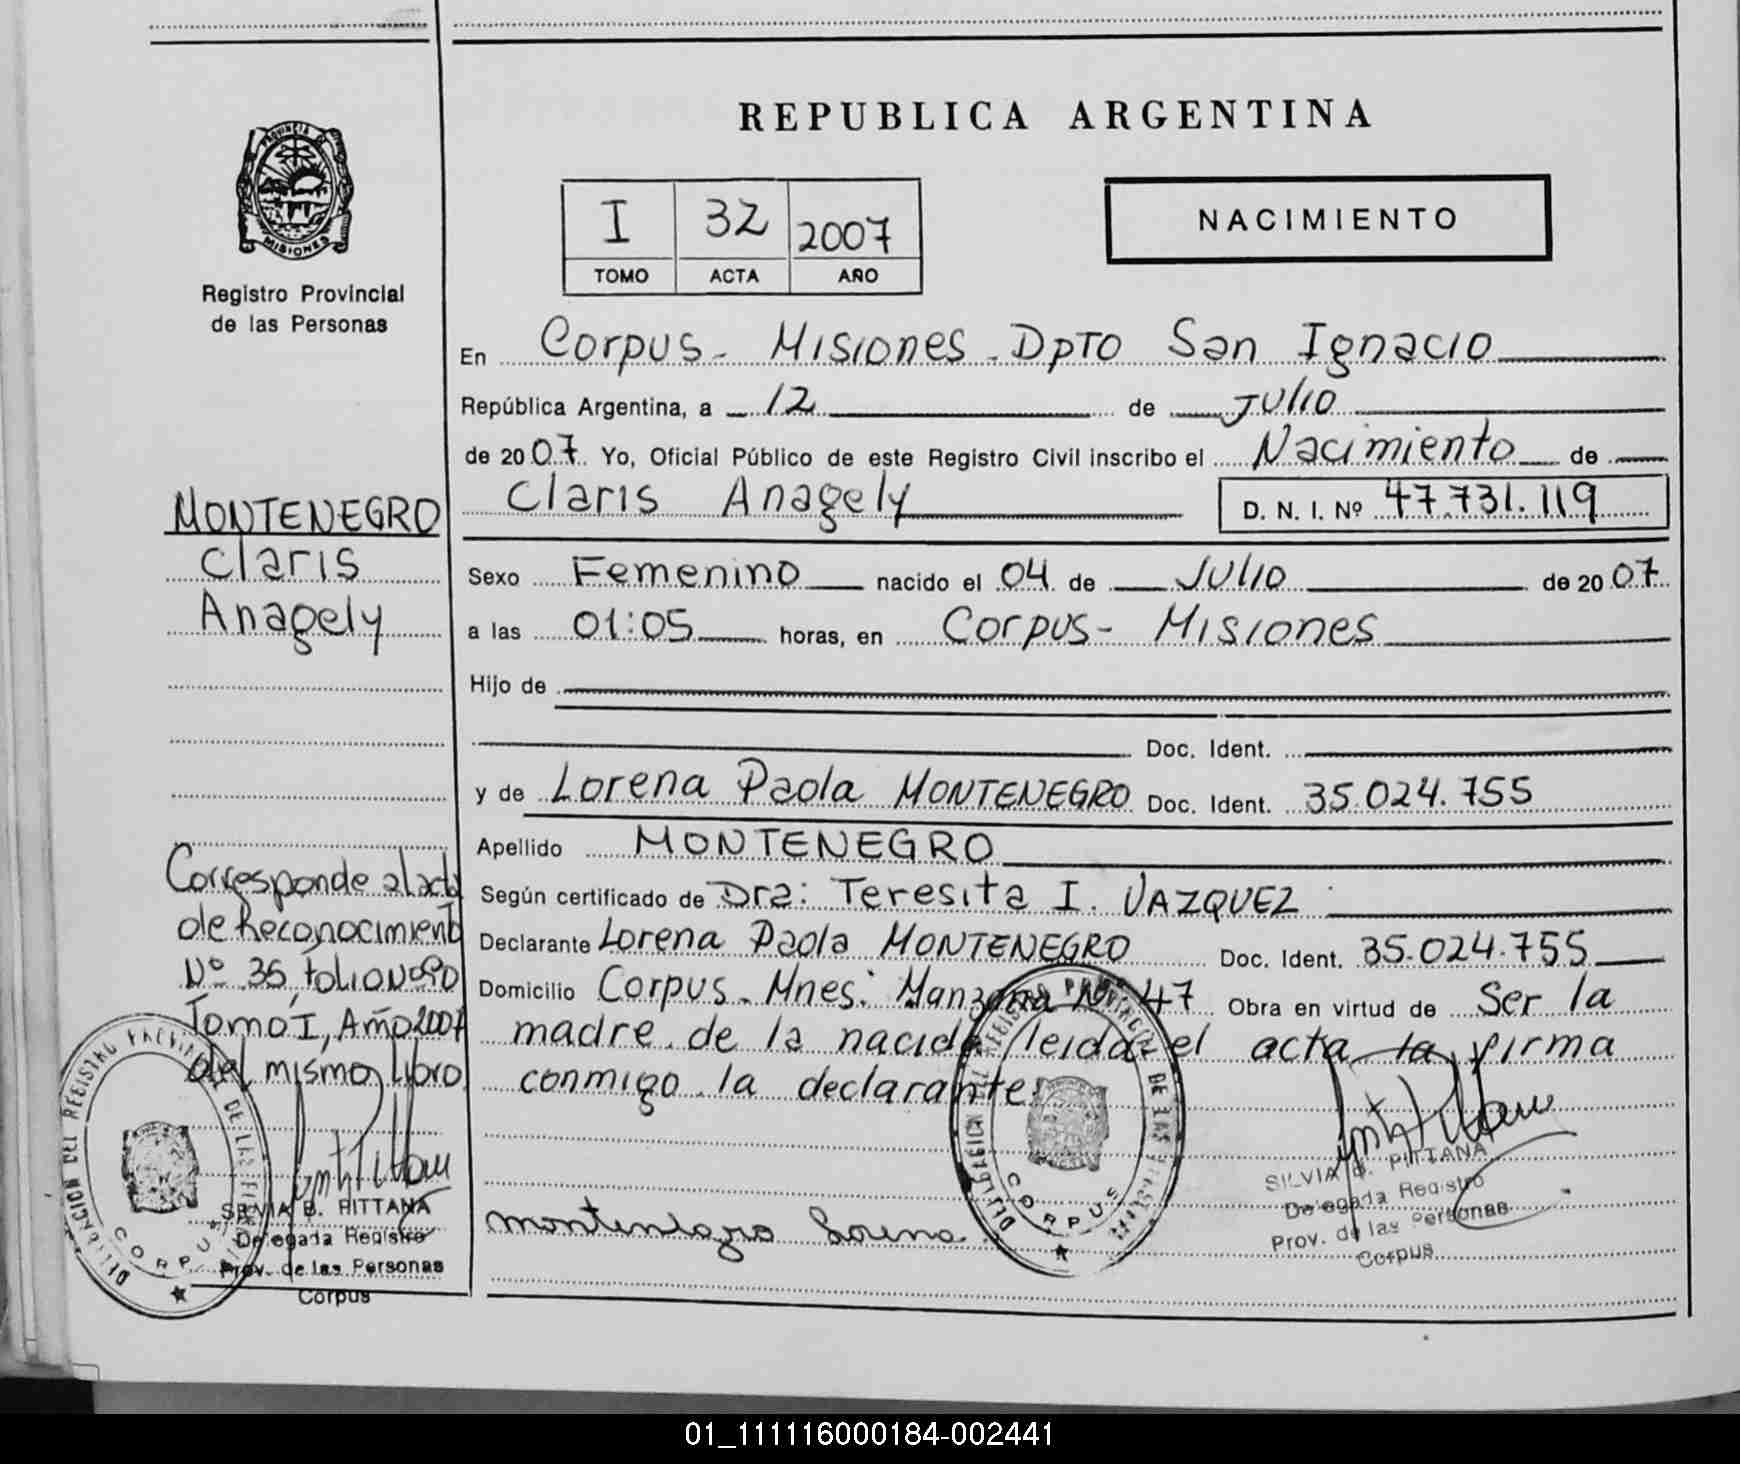 REPUBLICA ARGENTINA
PROVINCIA DE
MISIONES
Registro Provincial
de las Personas
I 32 2007
TOMO ACTA AÑO
NACIMIENTO
En Corpus - Misiones - Dpto San Ignacio
República Argentina, a 12 de Julio
de 2007. Yo, Oficial Público de este Registro Civil inscribo el Nacimiento de
Claris Anagely D. N. I. Nº 47.731.119
Sexo Femenino nacido el 04 de Julio de 2007
a las 01:05 horas, en Corpus - Misiones
Hijo de
Doc. Ident.
y de Lorena Paola MONTENEGRO Doc. Ident. 35.024.755
Apellido MONTENEGRO
Según certificado de Dra: Teresita I. VAZQUEZ
Declarante Lorena Paola MONTENEGRO Doc. Ident. 35.024.755
Domicilio Corpus - Mnes. Manzana Nº 47 Obra en virtud de Ser la
madre de la nacida leida el acta la firma
conmigo la declarante.
MONTENEGRO
Claris
Anagely
Corresponde al acta
de Reconocimiento
Nº 35, folio Nº
Tomo I, Año 2007
del mismo libro
DELEGACION DEL REGISTRO PROVINCIAL DE LAS PERSONAS
CORPUS
SILVIA B. PITTANA
Delegada Registro
Prov. de las Personas
Corpus
Montenegro Lorena
DELEGACION DEL REGISTRO PROVINCIAL DE LAS PERSONAS
CORPUS
SILVIA B. PITTANA
Delegada Registro
Prov. de las Personas
Corpus
01_111116000184-002441